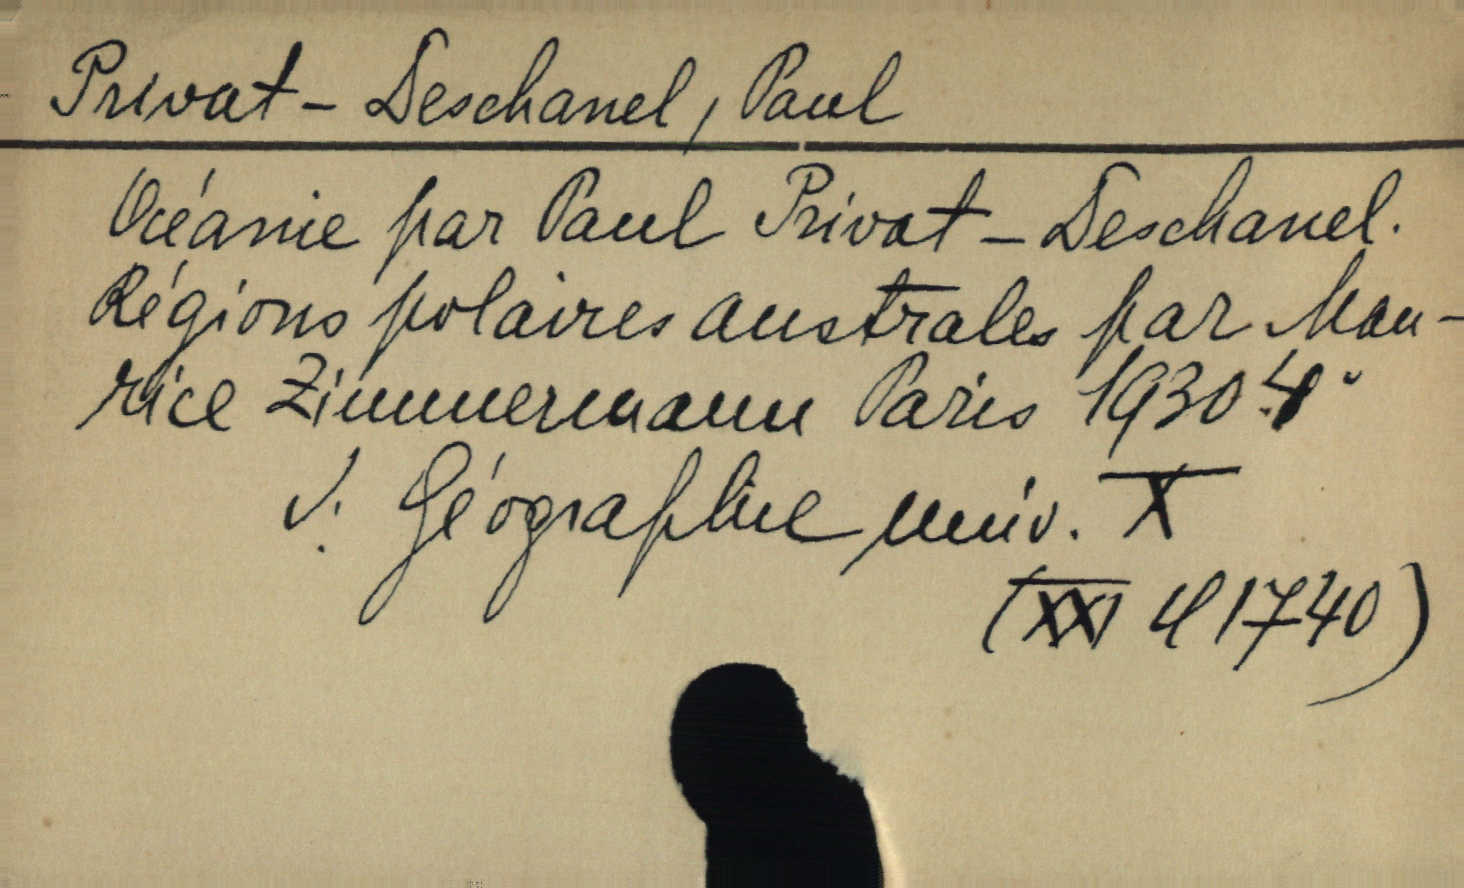 Privat-Deschanel, Paul
Océanie par Paul Privat-Deschanel.
Régions polaires australes par Mau-
rice Zimmermann Paris 1930. 4°
V. Géographie univ. X
(XXI 4 1740)